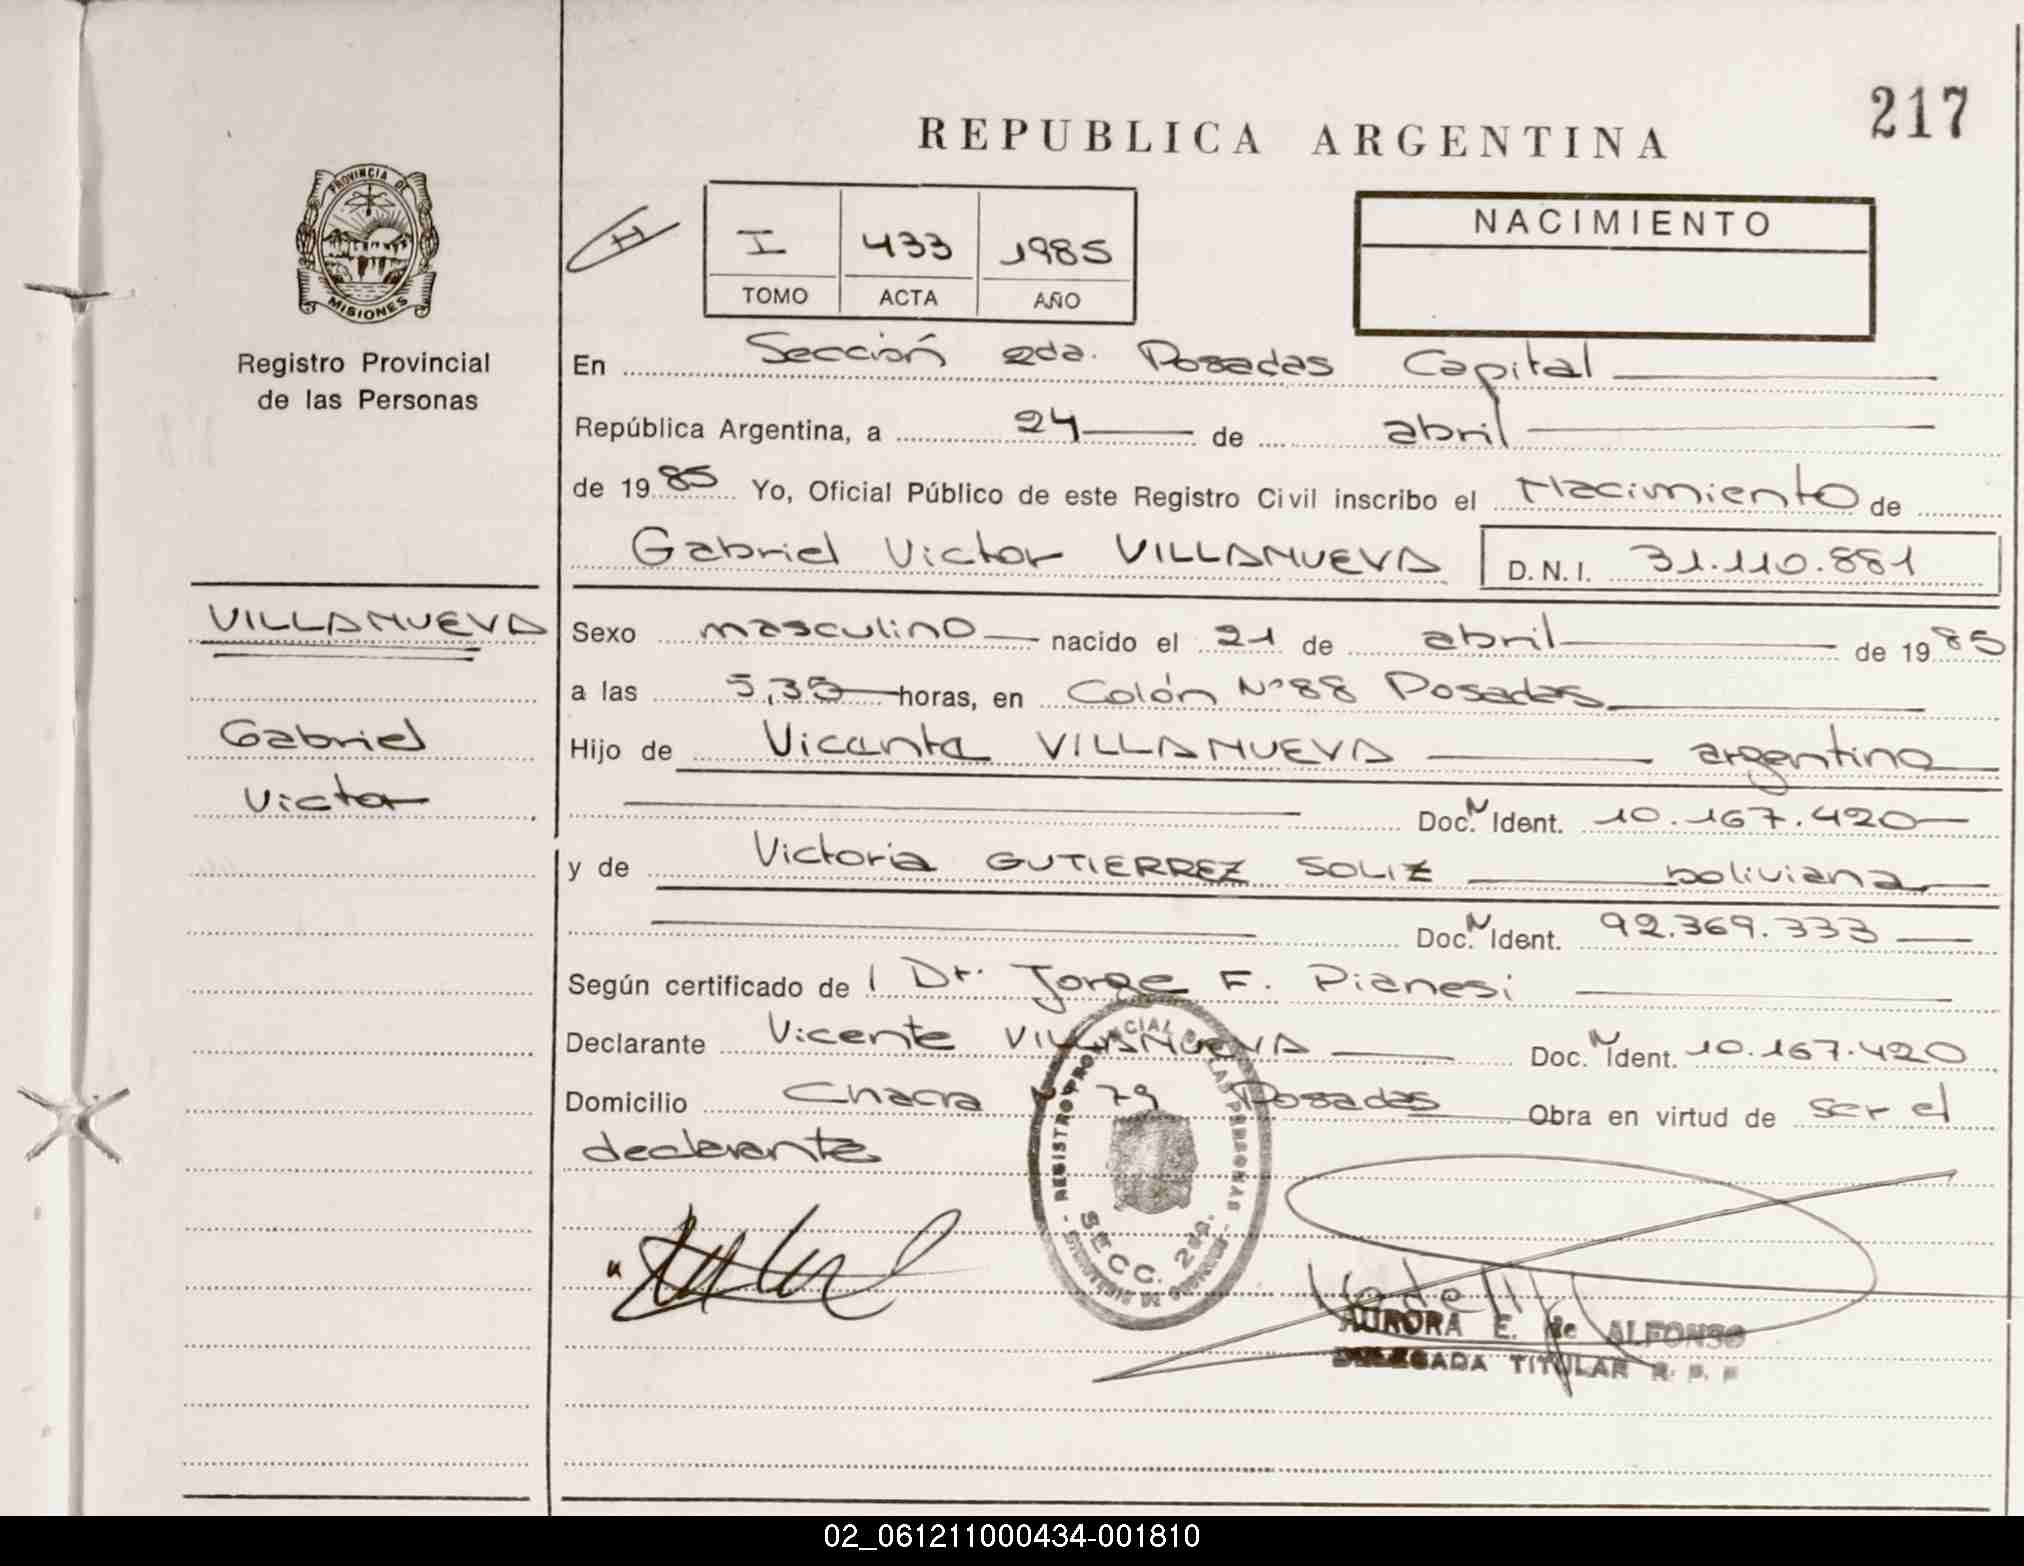 217
REPUBLICA ARGENTINA
PROVINCIA DE
MISIONES
Registro Provincial
de las Personas
H
I 433 1985
TOMO ACTA AÑO
NACIMIENTO
En Sección 2da. Posadas Capital
República Argentina, a 24 de abril
de 1985 Yo, Oficial Público de este Registro Civil inscribo el Nacimiento de
Gabriel Victor VILLANUEVA D.N.I. 31.110.881
VILLANUEVA
Gabriel
Victor
Sexo masculino nacido el 21 de abril de 1985
a las 5,35 horas, en Colón Nº 88 Posadas
Hijo de Vicente VILLANUEVA argentino
Doc. N Ident. 10.167.420
y de Victoria GUTIERREZ SOLIZ boliviana
Doc. N Ident. 92.369.333
Según certificado de l Dr. Jorge F. Pianesi
Declarante Vicente VILLANUEVA Doc. N Ident. 10.167.420
Domicilio Chacra N 79 Posadas Obra en virtud de ser el
declarante
REGISTRO PROVINCIAL DE LAS PERSONAS
SECC. 2da.
AURORA E. de ALFONSO
DELEGADA TITULAR R. P. P
02_061211000434-001810